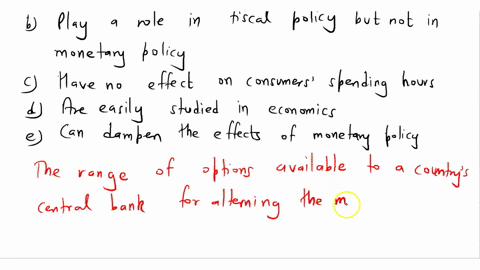 b) Play a role in fiscal policy but not in
monetary policy
c) Have no effect on consumers' spending hours
d) Are easily studied in economics
e) Can dampen the effects of monetary policy
The range of options available to a country's
central bank for alterning the m